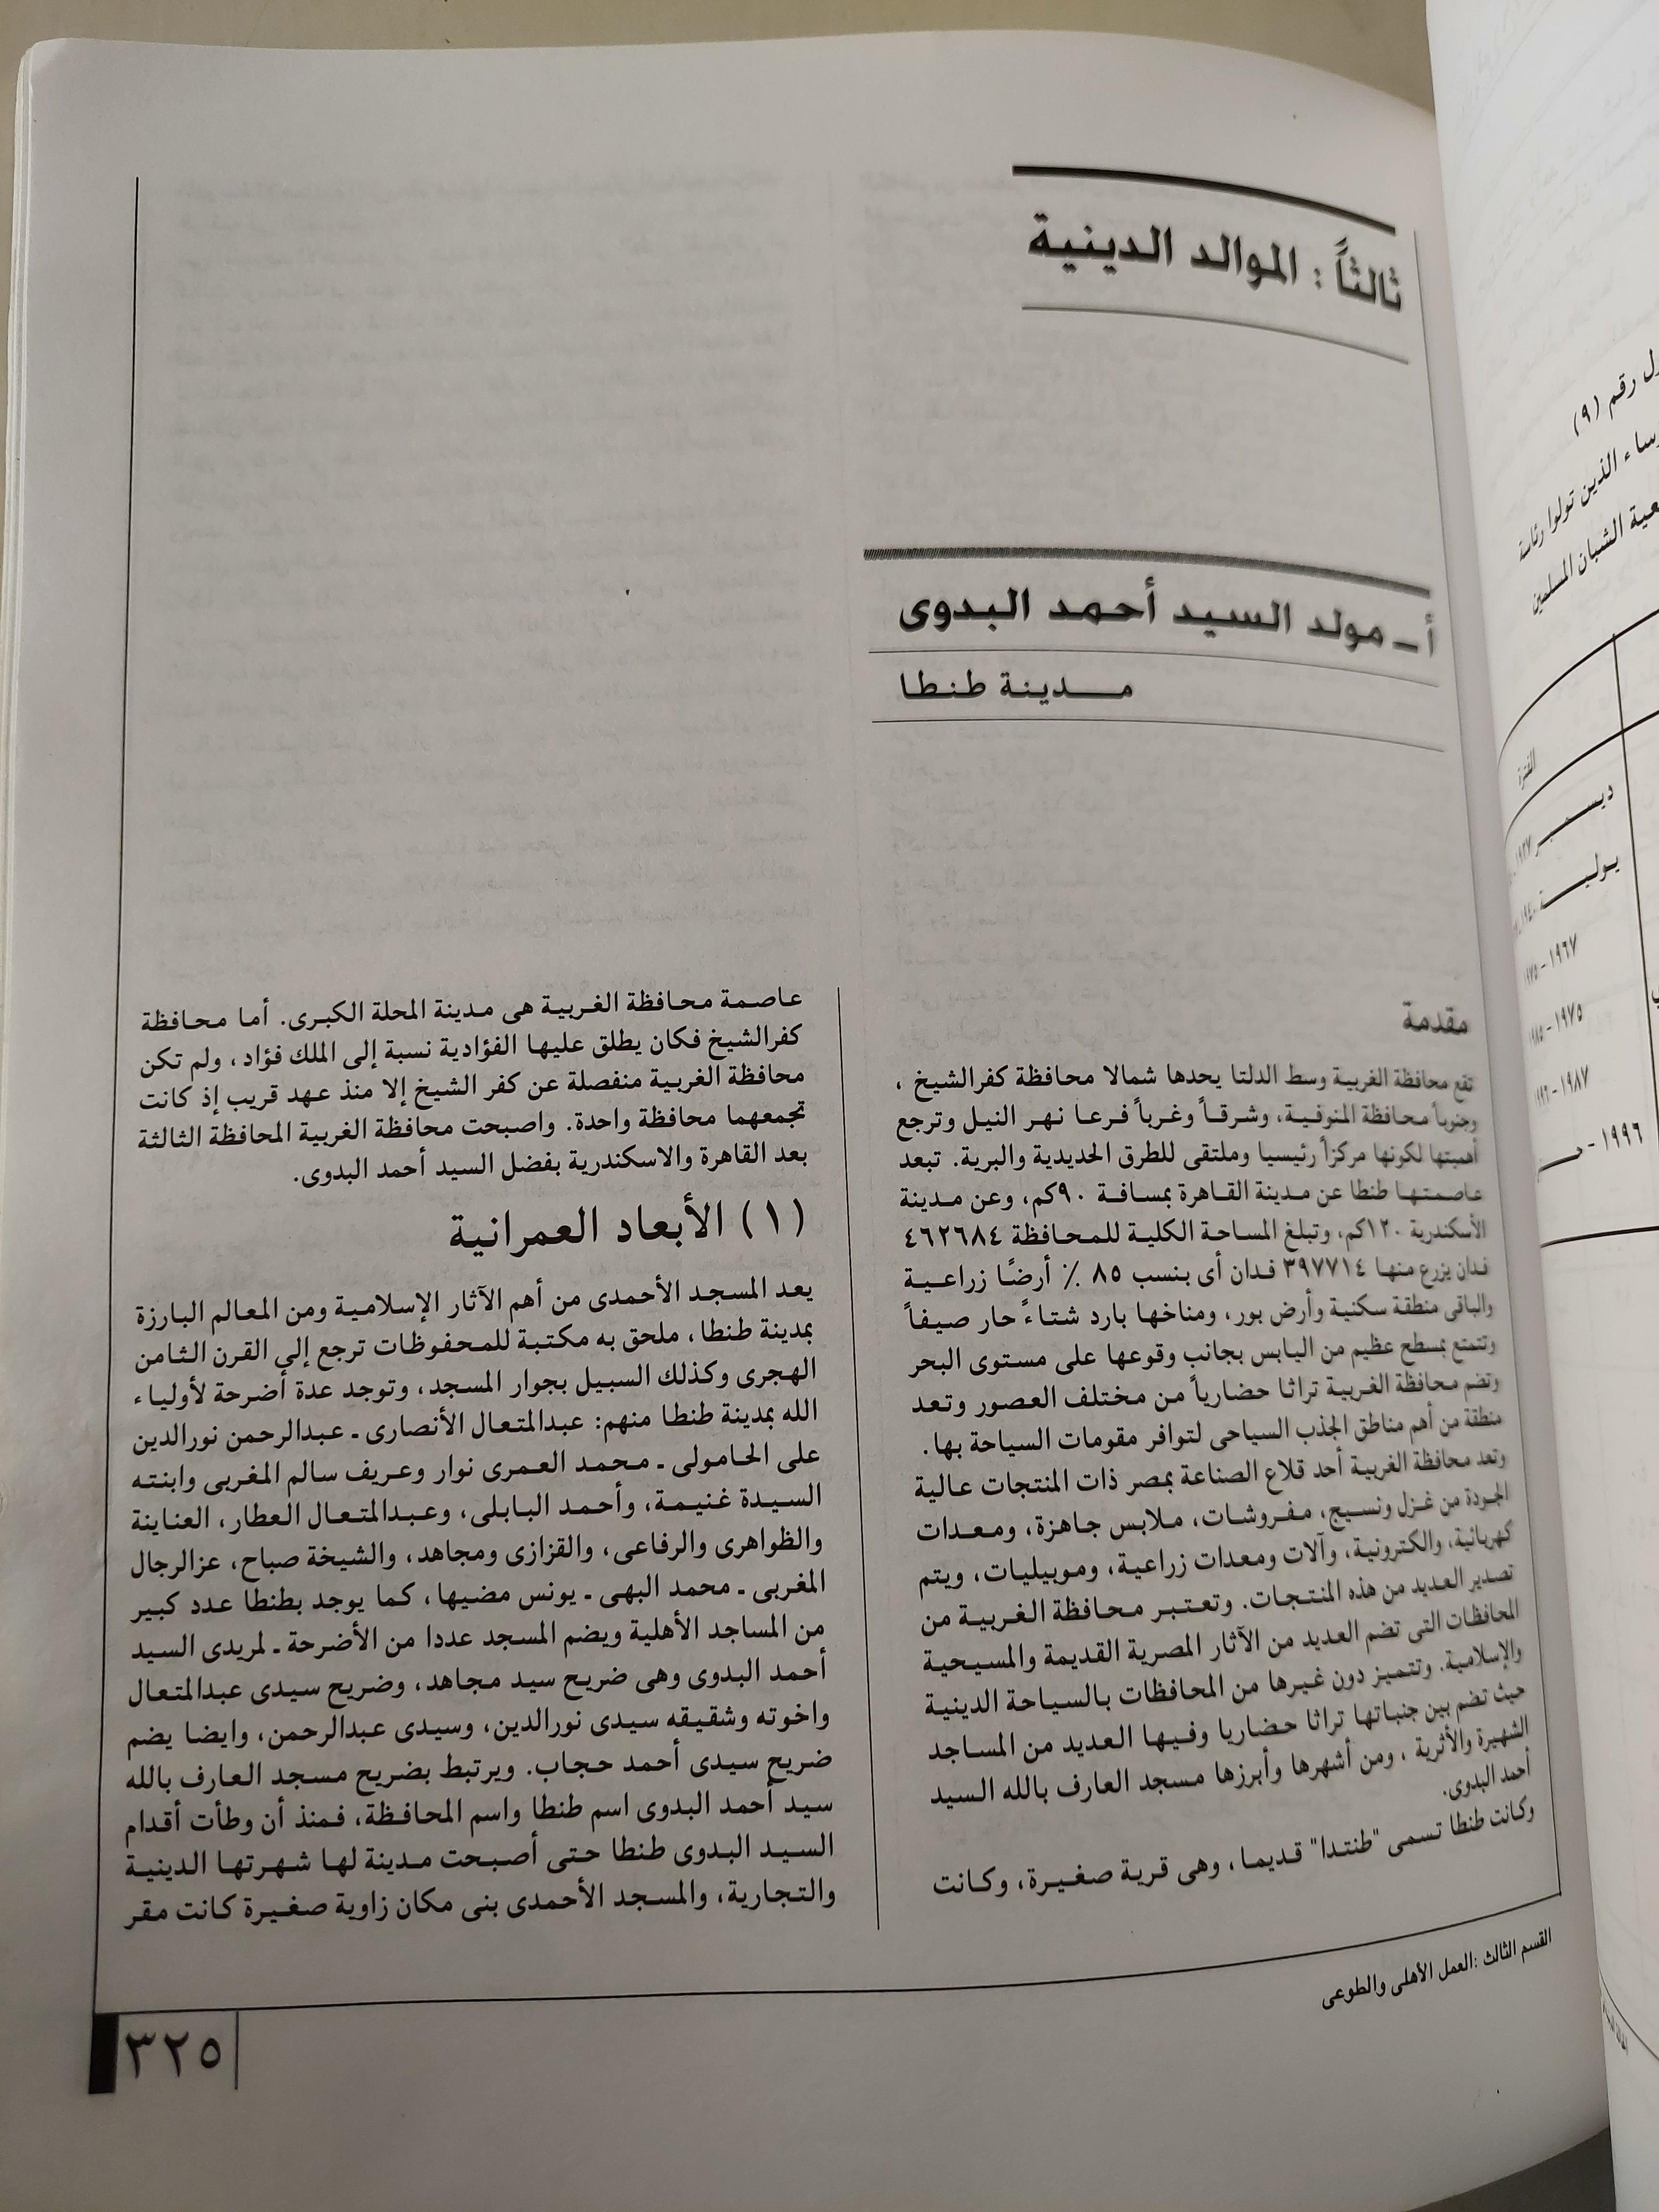 ثالثاً : الموالد الدينية
أ ـ مولد السيد أحمد البدوى
مدينة طنطا
مقدمة
تقع محافظة الغربية وسط الدلتا يحدها شمالا محافظة كفرالشيخ ،
وجنوباً محافظة المنوفية، وشرقاً وغرباً فرعا نهر النيل وترجع
أهميتها لكونها مركزاً رئيسيا وملتقى للطرق الحديدية والبرية. تبعد
عاصمتها طنطا عن مدينة القاهرة بمسافة ٩٠كم، وعن مدينة
الأسكندرية ١٢٠كم، وتبلغ المساحة الكلية للمحافظة ٤٦٢٦٨٤
فدان يزرع منها ٣٩٧٧١٤ فدان أى بنسب ٨٥ ٪ أرضًا زراعية
والباقى منطقة سكنية وأرض بور، ومناخها بارد شتاءً حار صيفاً
وتتمتع بمسطح عظيم من اليابس بجانب وقوعها على مستوى البحر
وتضم محافظة الغربية تراثا حضارياً من مختلف العصور وتعد
منطقة من أهم مناطق الجذب السياحى لتوافر مقومات السياحة بها.
وتعد محافظة الغربية أحد قلاع الصناعة بمصر ذات المنتجات عالية
الجودة من غزل ونسيج، مفروشات، ملابس جاهزة، ومعدات
كهربائية، والكترونية، وآلات ومعدات زراعية، وموبيليات، ويتم
تصدير العديد من هذه المنتجات. وتعتبر محافظة الغربية من
المحافظات التى تضم العديد من الآثار المصرية القديمة والمسيحية
والإسلامية. وتتميز دون غيرها من المحافظات بالسياحة الدينية
حيث تضم بين جنباتها تراثا حضاريا وفيها العديد من المساجد
الشهيرة والأثرية ، ومن أشهرها وأبرزها مسجد العارف بالله السيد
أحمد البدوى.
وكانت طنطا تسمى "طنتدا" قديما، وهى قرية صغيرة، وكانت
عاصمة محافظة الغربية هى مدينة المحلة الكبرى. أما محافظة
كفرالشيخ فكان يطلق عليها الفؤادية نسبة إلى الملك فؤاد، ولم تكن
محافظة الغربية منفصلة عن كفر الشيخ إلا منذ عهد قريب إذ كانت
تجمعهما محافظة واحدة. واصبحت محافظة الغربية المحافظة الثالثة
بعد القاهرة والاسكندرية بفضل السيد أحمد البدوى.
(١) الأبعاد العمرانية
يعد المسجد الأحمدى من أهم الآثار الإسلامية ومن المعالم البارزة
بمدينة طنطا، ملحق به مكتبة للمحفوظات ترجع إلى القرن الثامن
الهجرى وكذلك السبيل بجوار المسجد، وتوجد عدة أضرحة لأولياء
الله بمدينة طنطا منهم: عبدالمتعال الأنصارى ـ عبدالرحمن نورالدين
على الحامولى ـ محمد العمرى نوار وعريف سالم المغربى وابنته
السيدة غنيمة، وأحمد البابلى، وعبدالمتعال العطار، العناينة
والظواهرى والرفاعى، والقزازى ومجاهد، والشيخة صباح، عزالرجال
المغربى ـ محمد البهى ـ يونس مضيها، كما يوجد بطنطا عدد كبير
من المساجد الأهلية ويضم المسجد عددا من الأضرحة ـ لمريدى السيد
أحمد البدوى وهى ضريح سيد مجاهد، وضريح سيدى عبدالمتعال
واخوته وشقيقه سيدى نورالدين، وسيدى عبدالرحمن، وايضا يضم
ضريح سيدى أحمد حجاب. ويرتبط بضريح مسجد العارف بالله
سيد أحمد البدوى اسم طنطا واسم المحافظة، فمنذ أن وطأت أقدام
السيد البدوى طنطا حتى أصبحت مدينة لها شهرتها الدينية
والتجارية، والمسجد الأحمدى بنى مكان زاوية صغيرة كانت مقر
القسم الثالث :العمل الأهلى والطوعى
٣٢٥
رقم (٩)
الذين تولوا رئاسة
الشبان المسلمين
الفترة
١٩٦٧-
١٩٧٥-
١٩٨٧-
١٩٩٦ -